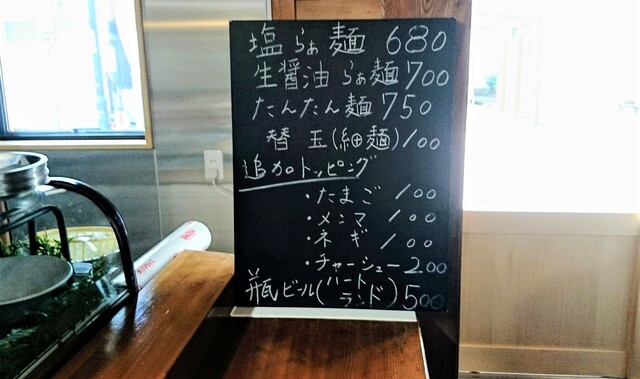 塩らぁ麺 680
生醤油らぁ麺 700
たんたん麺 750
替玉(細麺) 100
追加トッピング
・たまご 100
・メンマ 100
・ネギ 100
・チャーシュー 200
瓶ビール(ハートランド) 500